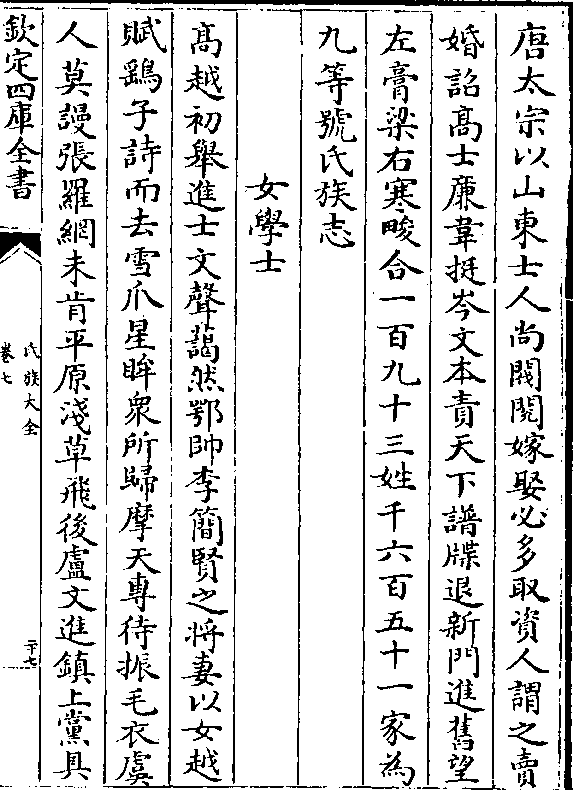 唐太宗以山東士人尚閥閱嫁娶必多取資人謂之賣
婚詔髙士亷韋挺岑文本責天下譜牒退新門進舊望
左膏梁右寒畯合一百九十三姓千六百五十一家為
九等號氏族志
女學士
髙越初舉進士文聲藹然鄂帥李簡賢之将妻以女越
賦鷂子詩而去雪爪星眸衆所歸摩天專待振毛衣虞
人莫謾張羅網未肯平原淺草飛後盧文進鎮上黨具
欽定四庫全書
氏族大全
卷七
二十七